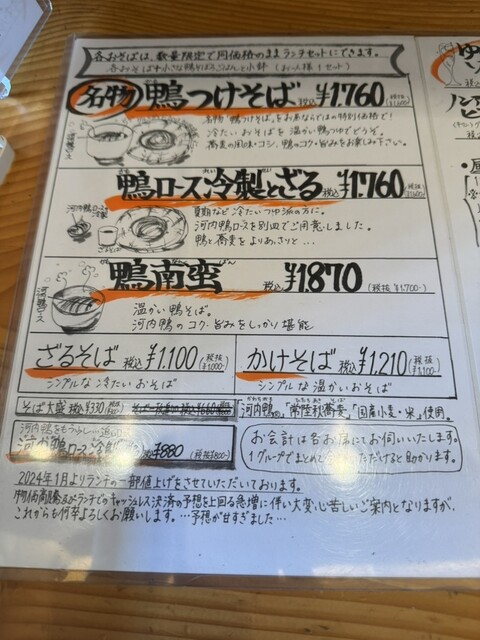 各おそばは、数量限定で同価格のままランチセットにできます。
各おそば+小さな鴨そぼろごはんと小鉢 (お一人様1セット)
名物 鴨つけそば 税込¥1,760 (税抜¥1,600)
名物「鴨つけそば」をお昼ならではの特別価格で!
冷たいおそばを温かい鴨つゆでどうぞ。
蕎麦の風味・コシ、鴨のコク・旨みをお楽しみ下さい。
鴨ロース冷製とざる 税込¥1,760 (税抜¥1,600)
河内鴨ロース冷製
夏期など冷たいつゆ派の方に。
河内鴨ロースを別皿でご用意しました。
鴨と蕎麦をよりあっさりと…
鴨南蛮 税込¥1,870 (税抜¥1,700-)
河内鴨ロース
温かい鴨そば。
河内鴨のコク・旨みをしっかり堪能
ざるそば 税込¥1,100 (税抜¥1,000-)
シンプルな冷たいおそば
かけそば 税込¥1,210 (税抜¥1,100-)
シンプルな温かいおそば
そば大盛 税込¥330
河内鴨、「常陸秋蕎麦」「国産小麦・米」使用。
河内鴨をもう少し
河内鴨ロース冷製 ¥880 (税抜¥800-)
お会計は各お席にお伺いいたします。
1グループでまとめて いただけると助かります。
2024年1月よりランチの一部値上げをさせていただいております。
物価高騰及びランチでのキャッシュレス決済の予想を上回る急増に伴い大変心苦しいご案内となりますが、
これからも何卒よろしくお願いします。…予想が甘すぎました…